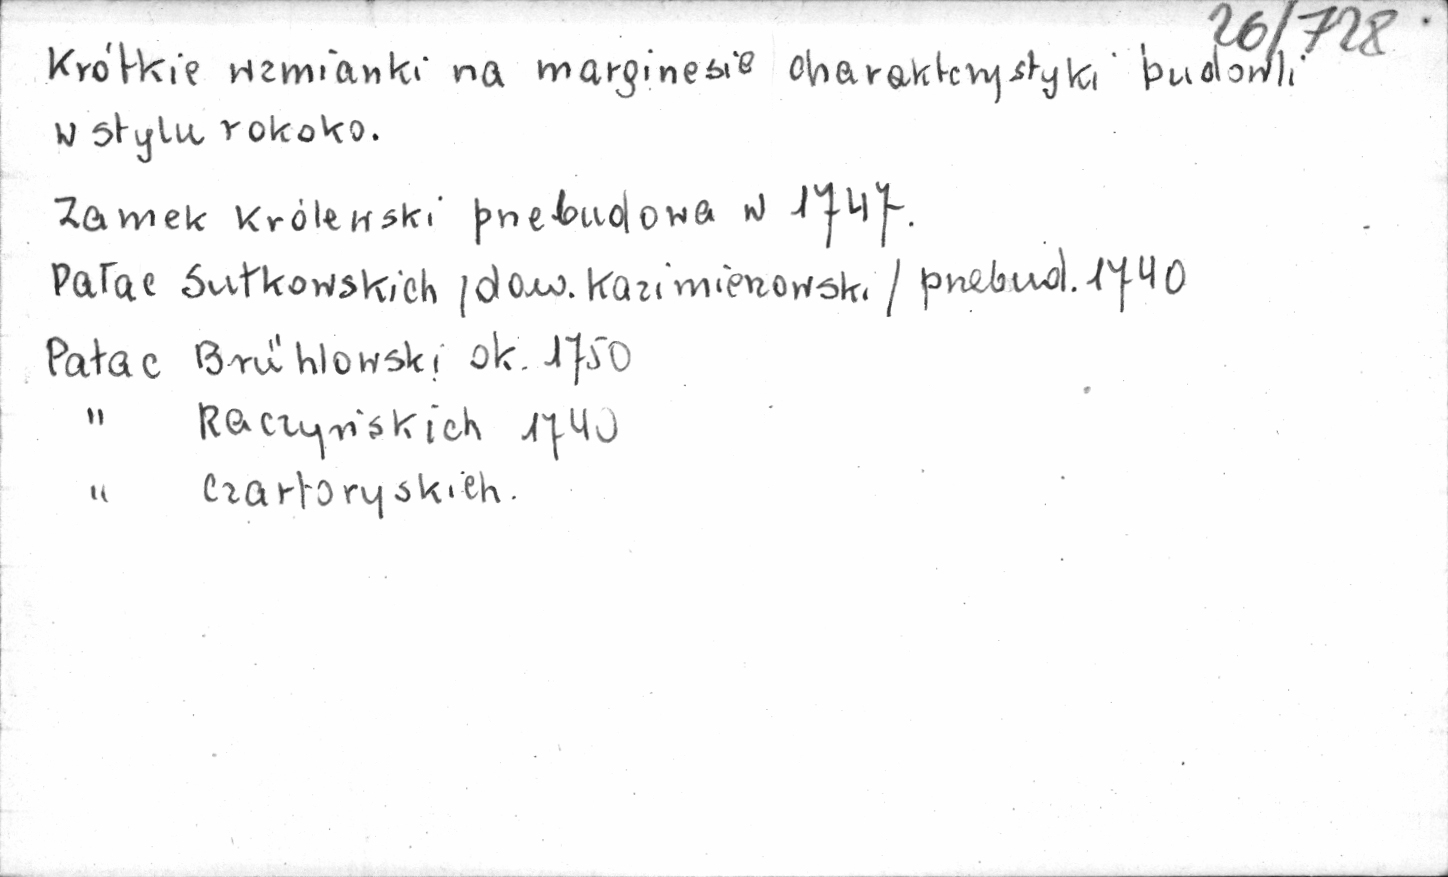 26/728
Krótkie wzmianki na marginesie charakterystyki budowli
w stylu rokoko.
Zamek Królewski przebudowa w 1747.
Pałac Sułkowskich /daw. Kazimierzowski/ przebud. 1740
Pałac Brühlowski ok. 1750
" Raczyńskich 1740
" Czartoryskich.